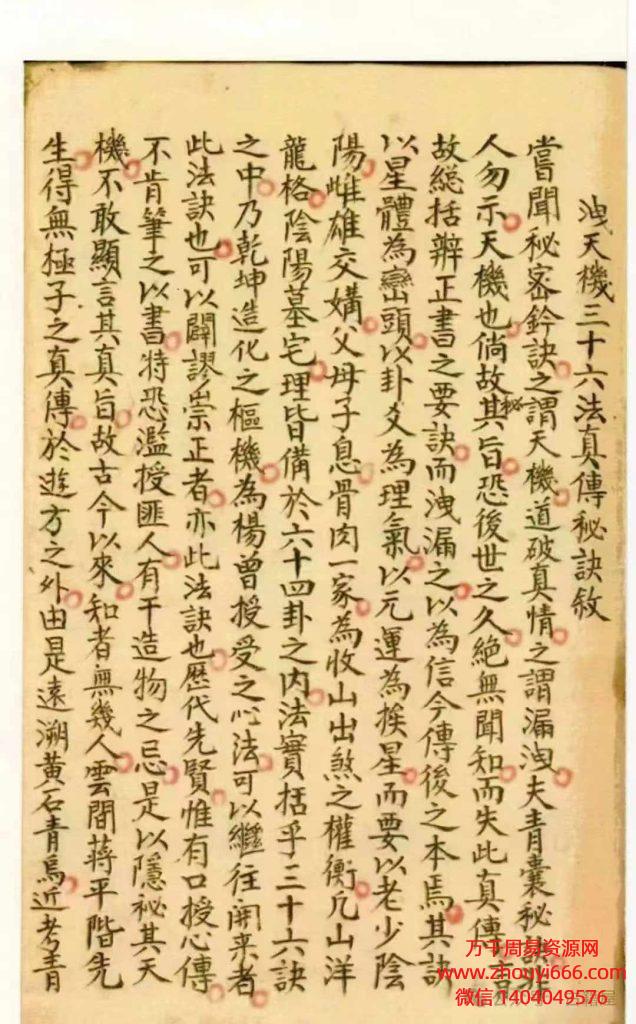 洩天機三十六法真傳秘訣敘
嘗聞秘密鈐訣之謂天機道破真情之謂漏洩夫青囊秘訣非
人勿示天機也倘故秘其旨恐後世之久絕無聞知而失此真傳
故總括辨正書之要訣而洩漏之以為信今傳後之本焉其訣
以星體為巒頭以卦爻為理氣以元運為挨星而要以老少陰
陽雌雄交媾父母子息骨肉一家為收山出煞之權衡凡山洋
龍格陰陽墓宅理皆備於六十四卦之內法實括乎三十六訣
之中乃乾坤造化之樞機為楊曾授受之心法可以繼往開來者
此法訣也可以闢謬崇正者亦此法訣也歷代先賢惟有口授心傳
不肯筆之以書特恐濫授匪人有干造物之忌是以隱秘其天
機不敢顯言其真旨故古今以來知者無幾人雲間蔣平階先
生得無極子之真傳於遊方之外由是遠溯黃石青烏近考青
万千周易资源网
www.zhouyi666.com
微信1404049576